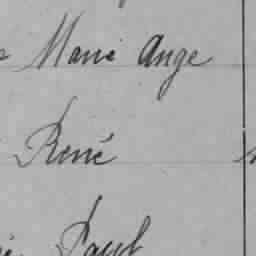 Marie Ange
René
Paul